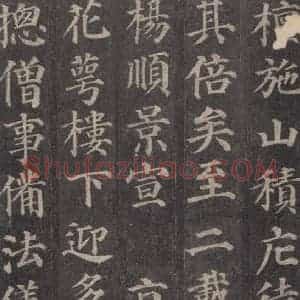 檀施山積庀徒
其倍矣至二載
楊順景宣
花萼樓下迎多
摠僧事備法儀
Shufaziliao.COM